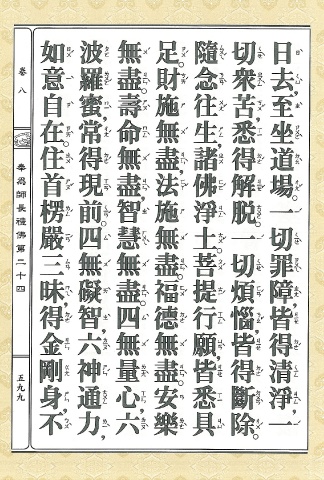 日去至坐道場。一切罪障皆得清淨，一
切衆苦悉得解脫。一切煩惱皆得斷除。
隨念往生諸佛淨土。菩提行願，皆悉具
足。財施無盡，法施無盡。福德無盡。安樂
無盡。壽命無盡，智慧無盡。四無量心，六
波羅蜜，常得現前。四無礙智，六神通力，
如意自在。住首楞嚴三昧，得金剛身，不
卷八
奉爲師長禮佛第二十四
五九九